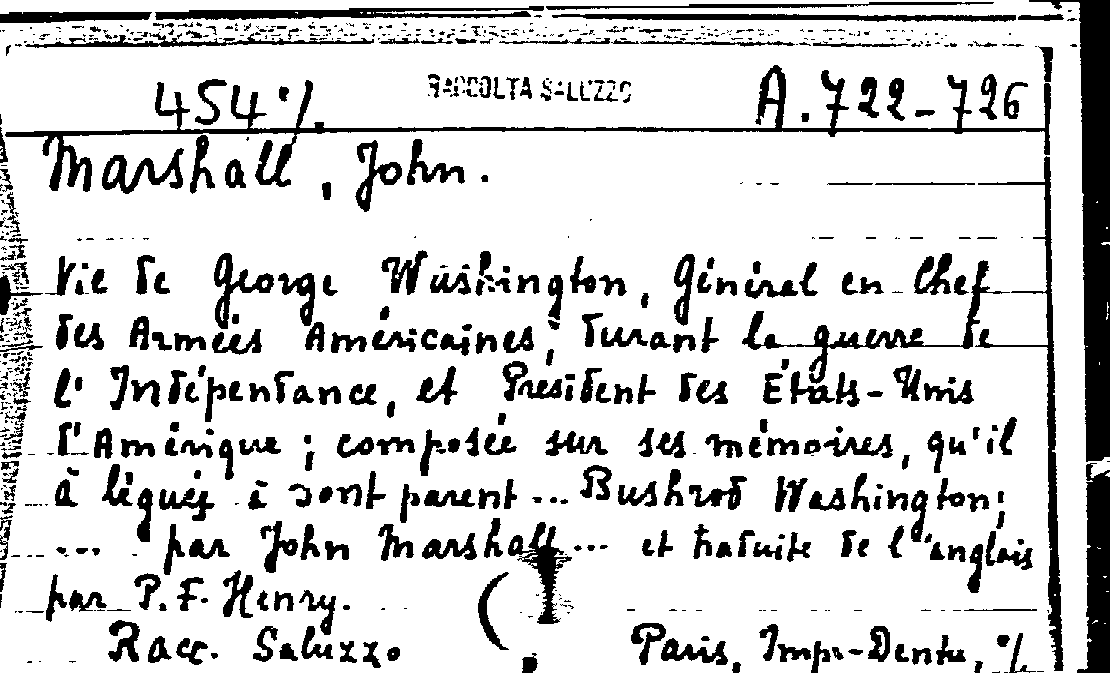 454 ·/. RACCOLTA SALUZZO A.722-726
Marshall, John.
Vie de George Washington, Général en Chef
des Armées Américaines, durant la guerre de
l'Indépendance, et Président des États-Unis
d'Amérique ; composée sur ses mémoires, qu'il
à légués à sont parent ... Bushrod Washington;
... par John Marshall ... et traduite de l'anglais
par P.F. Henry.
Racc. Saluzzo Paris, Impr-Dentu, ·/.